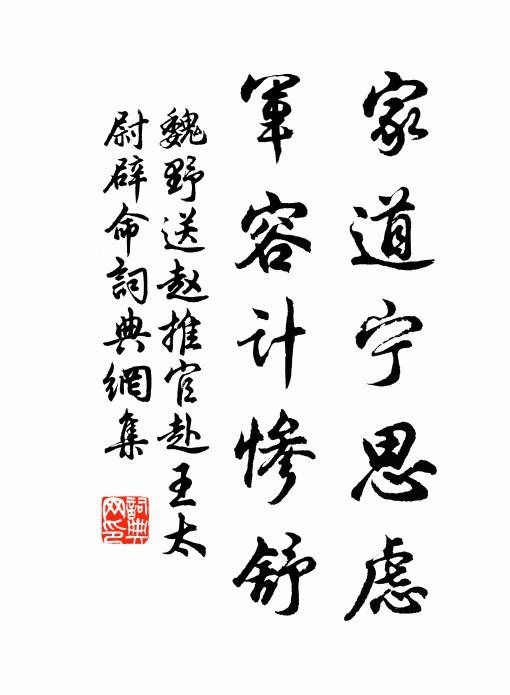 家道宁思虑
军容计惨舒
魏野送赵推官赴王太
尉辟命詞典網集
詞典